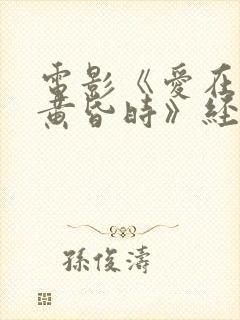 電影《愛在
黃昏時》經
孫俊濤